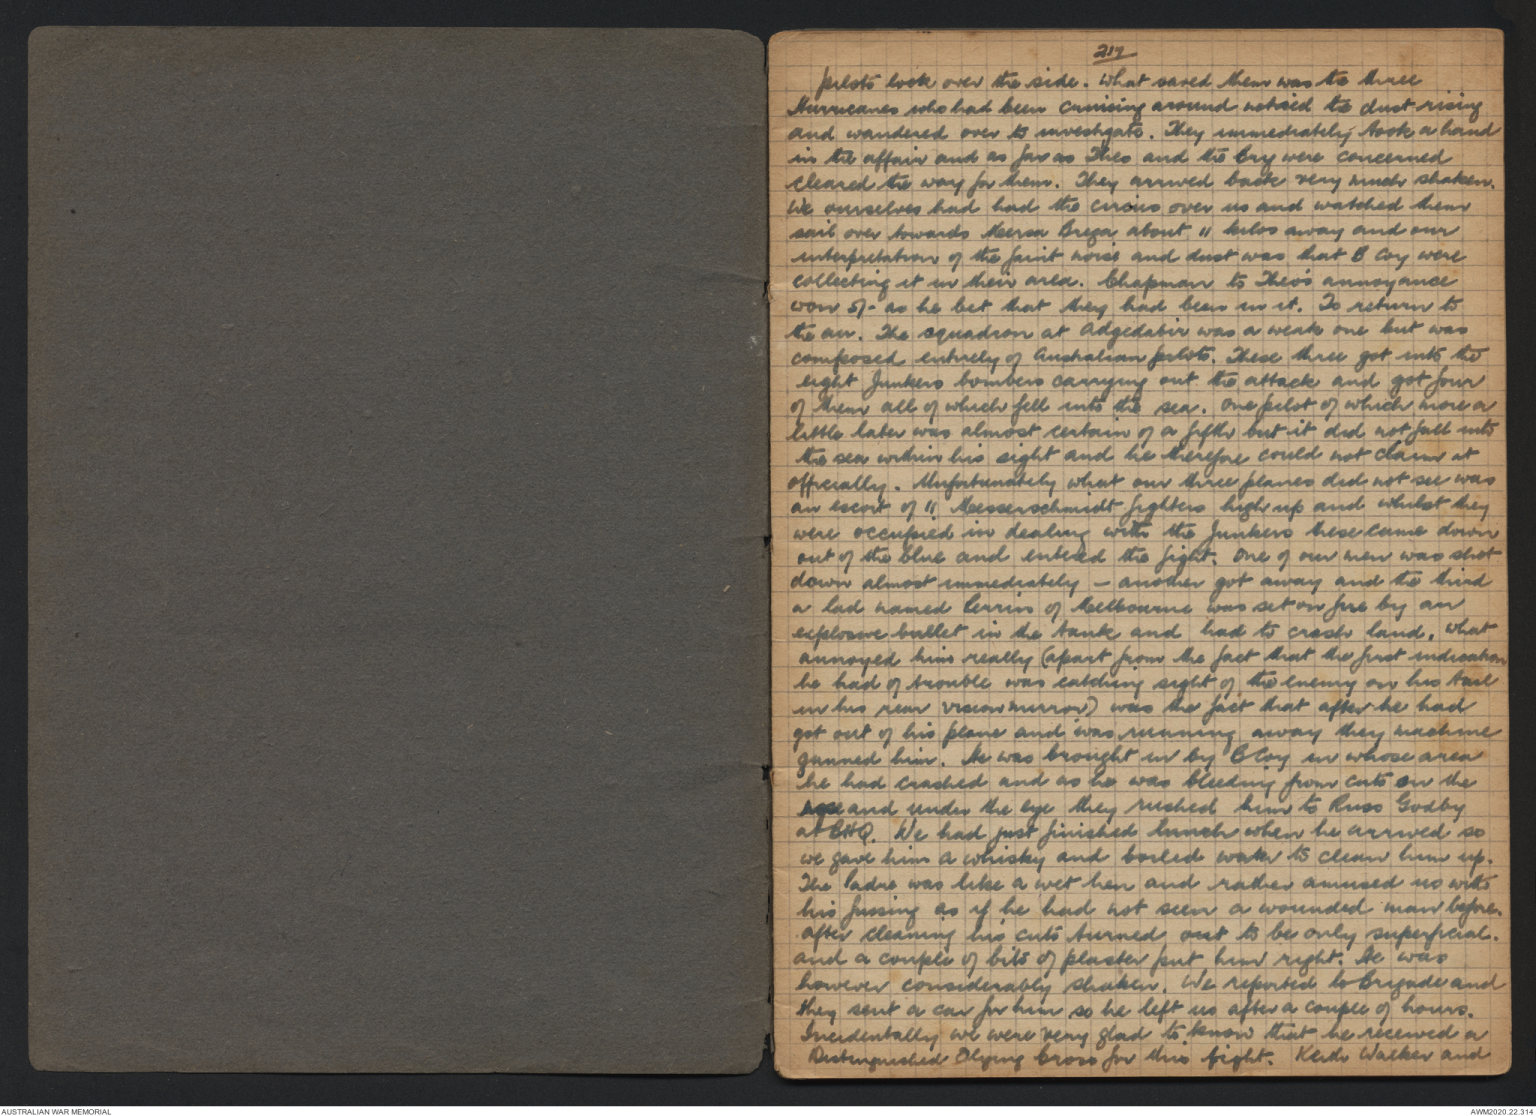 217
pilots look over the side. What saved them was the three
Hurricanes who had been cruising around noticed the dust rising
and wandered over to investigate. They immediately took a hand
in the affair and as far as Theo and the Bry were concerned
cleared the way for them. They arrived back very much shaken.
We ourselves had had the circus over us and watched them
sail over towards Mersa Brega about 11 kilos away and our
interpretation of the faint noise and dust was that B Coy were
collecting it in their area. Chapman to Theo's annoyance
won 5/- as he bet that they had been in it. To return to
the air. The squadron at Adgedabir was a weak one but was
composed entirely of Australian pilots. These three got into the
eight Junkers bombers carrying out the attack and got four
of them all of which fell into the sea. One pilot of which more a
little later was almost certain of a fifth but it did not fall into
the sea within his sight and he therefore could not claim it
officially. Unfortunately what our three planes did not see was
an escort of 11 Messerschmidt fighters high up and whilst they
were occupied in dealing with the Junkers these came down
out of the blue and entered the fight. One of our men was shot
down almost immediately - another got away and the third
a lad named Perrin of Melbourne was set on fire by an
explosive bullet in the tank and had to crash land. What
annoyed him really (apart from the fact that the first indication
he had of trouble was catching sight of the enemy on his tail
in his rear vision mirror) was the fact that after he had
got out of his plane and was running away they machine
gunned him. He was brought in by B Coy in whose area
he had crashed and as he was bleeding from cuts on the
and under the eye they rushed him to Russ Godby
at BHQ. We had just finished lunch when he arrived so
we gave him a whisky and boiled water to clean him up.
The Padre was like a wet hen and rather amused us with
his fussing as if he had not seen a wounded man before.
After cleaning his cuts turned out to be only superficial.
and a couple of bits of plaster put him right. He was
however considerably shaken. We reported to Brigade and
they sent a car for him so he left us after a couple of hours.
Incidentally we were very glad to know that he received a
Distinguished Flying Cross for this fight. Keith Walker and
AUSTRALIAN WAR MEMORIAL
AWM2020.22.314